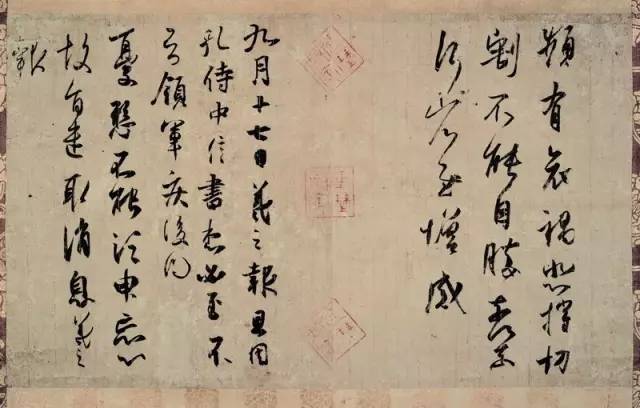 頻有哀禍悲摧切
割不能自勝奈何
奈何省慰增感
九月十七日羲之報且因
孔侍中信書想必至不
知領軍疾後問
憂懸不能須臾忘心
故旨遣取消息羲之
報